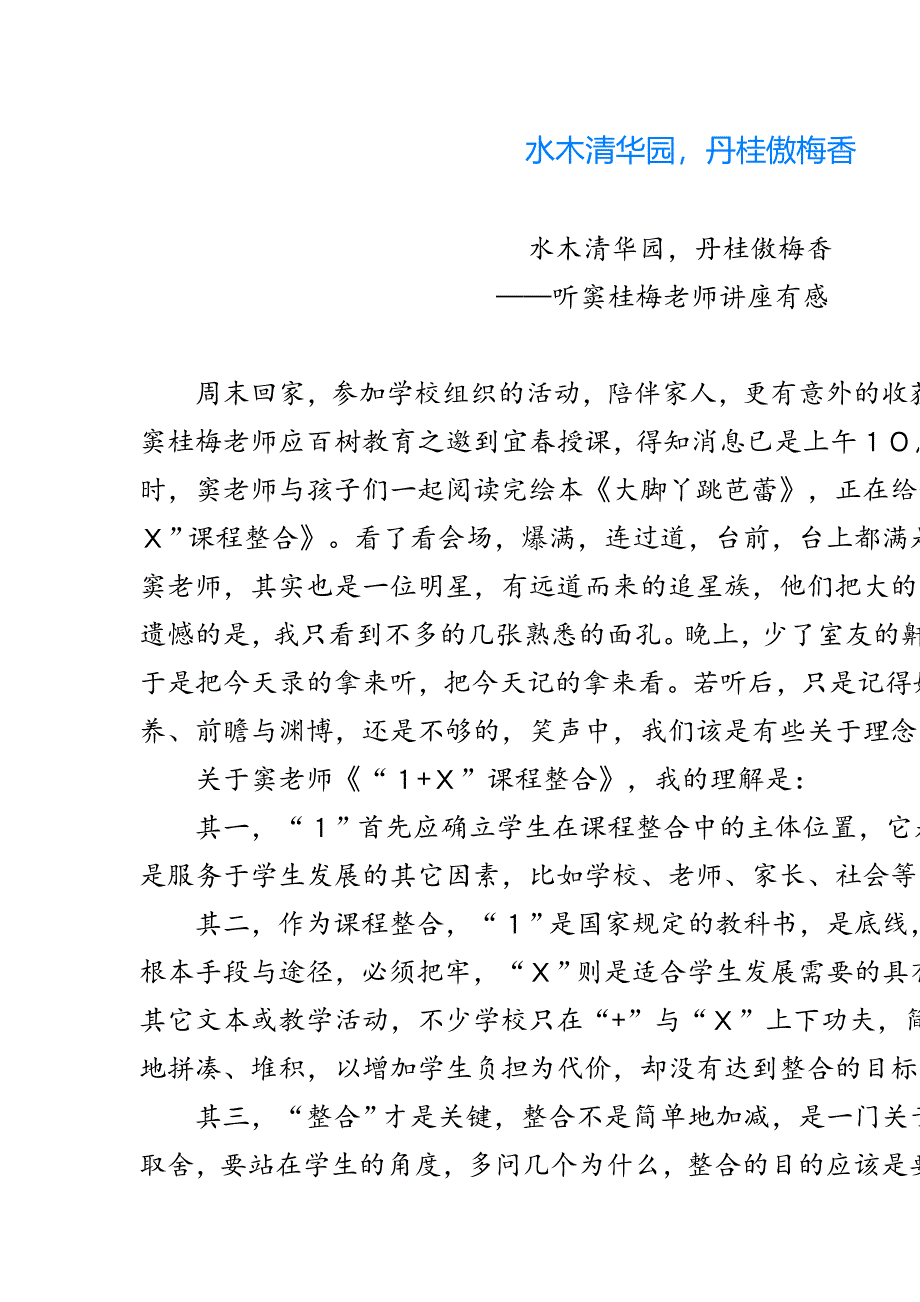 水木清华园，丹桂傲梅香
水木清华园，丹桂傲梅香
——听窦桂梅老师讲座有感
周末回家，参加学校组织的活动，陪伴家人，更有意外的收获
窦桂梅老师应百树教育之邀到宜春授课，得知消息已是上午１０
时，窦老师与孩子们一起阅读完绘本《大脚丫跳芭蕾》，正在给
Ｘ”课程整合》。看了看会场，爆满，连过道，台前，台上都满是
窦老师，其实也是一位明星，有远道而来的追星族，他们把大的
遗憾的是，我只看到不多的几张熟悉的面孔。晚上，少了室友的鼾
于是把今天录的拿来听，把今天记的拿来看。若听后，只是记得
养、前瞻与渊博，还是不够的，笑声中，我们该是有些关于理念
关于窦老师《“１+Ｘ”课程整合》，我的理解是：
其一，“１”首先应确立学生在课程整合中的主体位置，它是
是服务于学生发展的其它因素，比如学校、老师、家长、社会等
其二，作为课程整合，“１”是国家规定的教科书，是底线，
根本手段与途径，必须把牢，“Ｘ”则是适合学生发展需要的具有
其它文本或教学活动，不少学校只在“+”与“Ｘ”上下功夫，简
地拼凑、堆积，以增加学生负担为代价，却没有达到整合的目标
其三，“整合”才是关键，整合不是简单地加减，是一门关于
取舍，要站在学生的角度，多问几个为什么，整合的目的应该是要